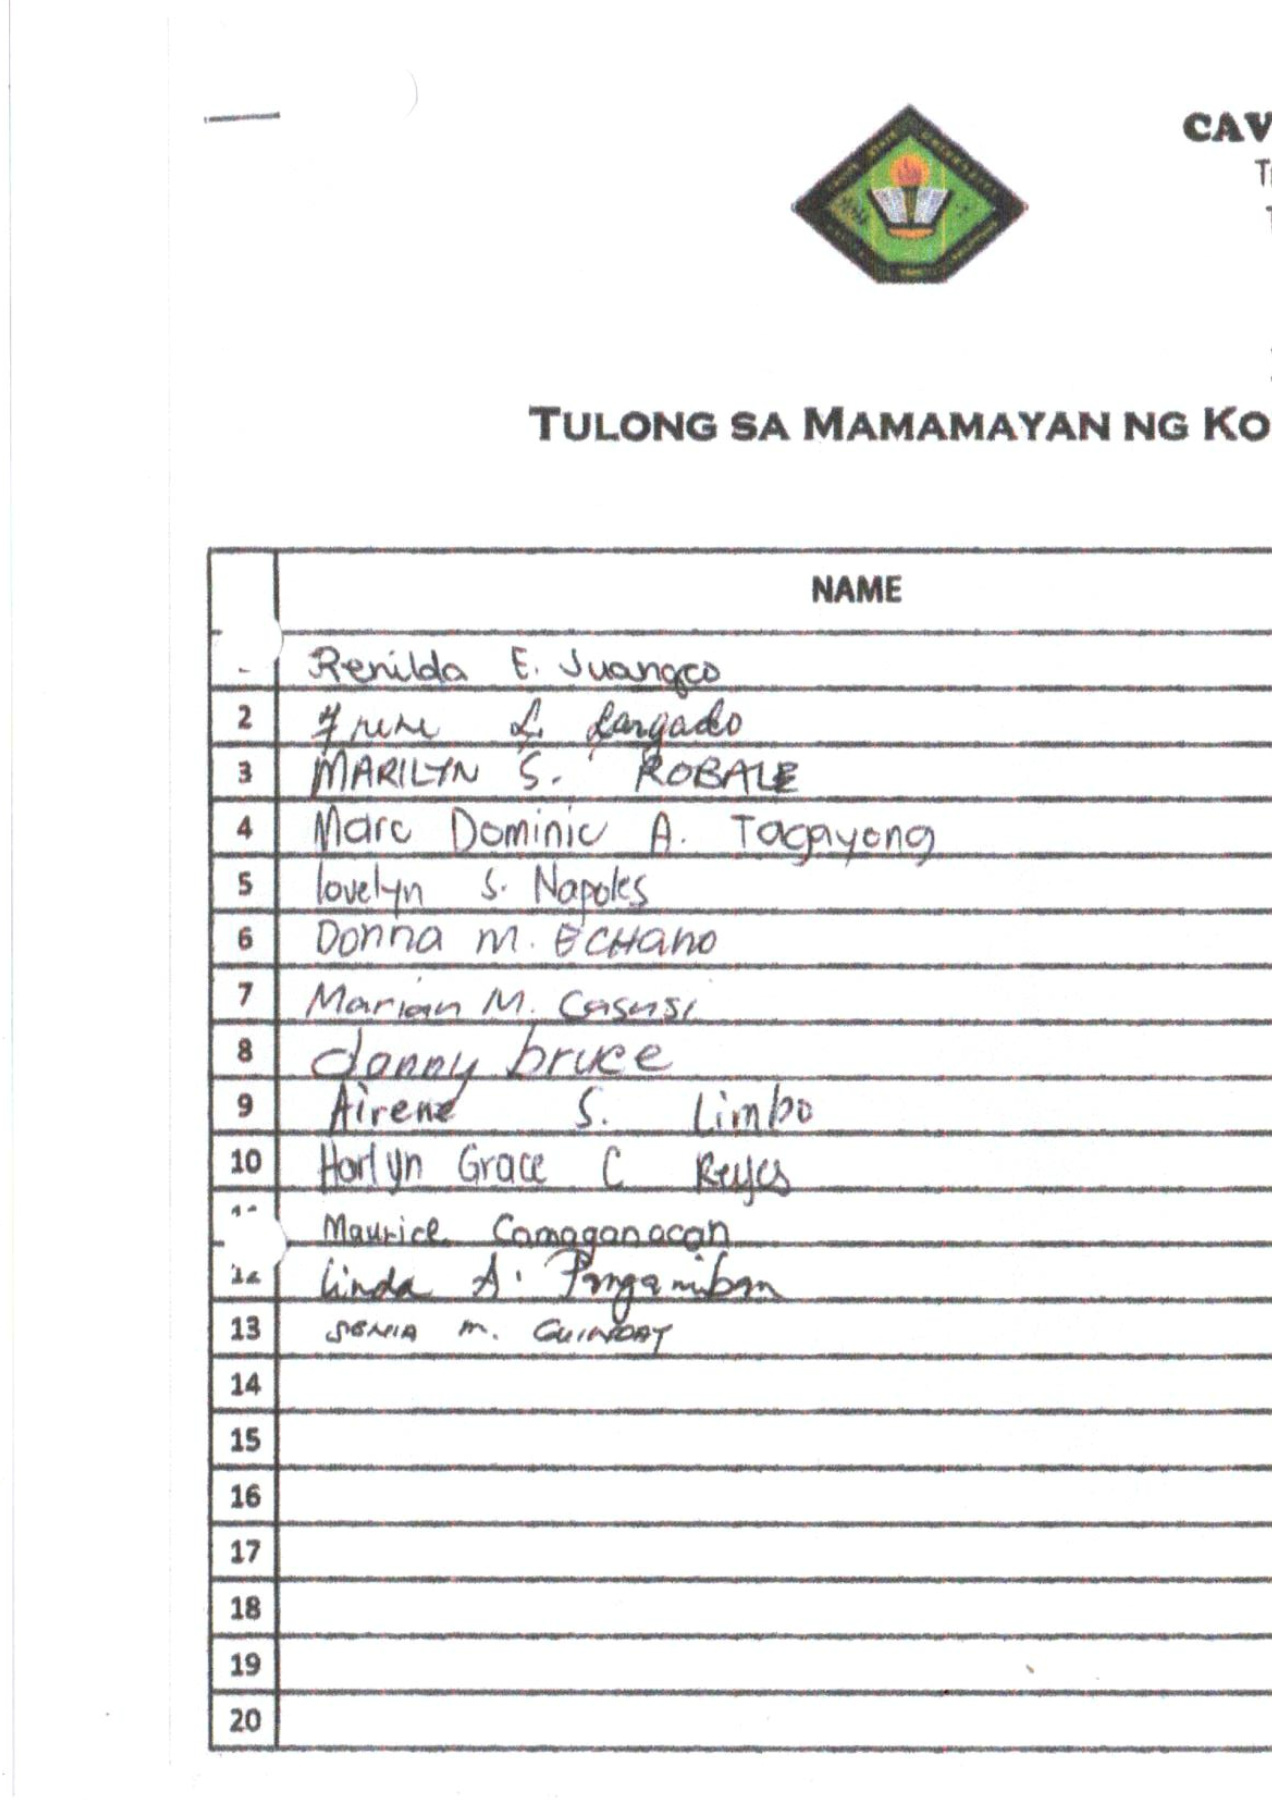 CAV
TULONG SA MAMAMAYAN NG KO
NAME
Renilda E. Juangco
2 L.
3 MARILYN S. ROBALE
4 Marc Dominic A. Tagayong
5 lovelyn S. Napoles
6 Donna M. ECHANO
7 Marian M. Casusi
8 donny bruce
9 Airene S. Limbo
10 Harlyn Grace C Reyes
Maurice Camaganacan
12 Linda A. Panganiban
13 M.
14
15
16
17
18
19
20